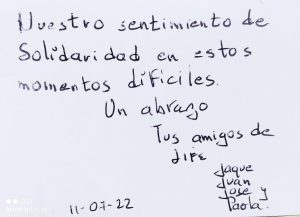 Nuestro sentimiento de
Solidaridad en estos
momentos dificiles.
Un abrazo
Tus amigos de
JIFE
Jaque
Juan
Jose y
Paola.
11-07-22